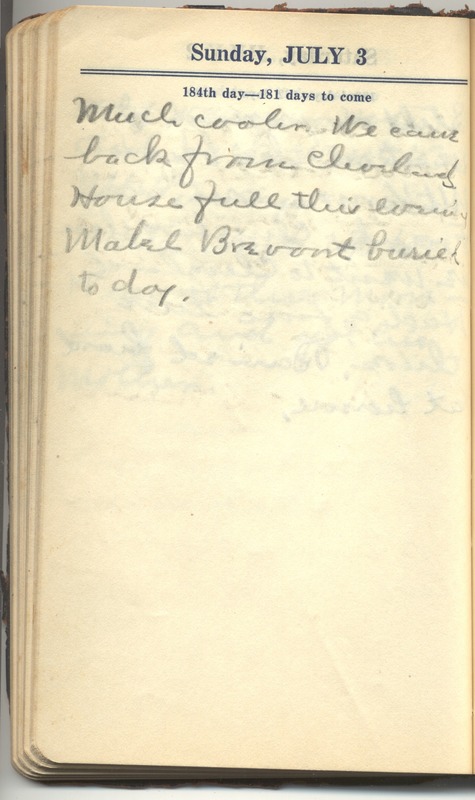 Sunday, JULY 3
184th day—181 days to come
Much cooler. We came
back from Cleveland
House full this evening
Mabel Brevoort buried
to day.